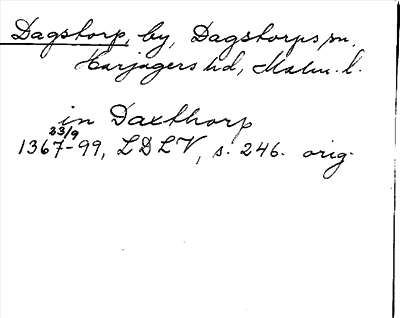 Dagstorp, by, Dagstorps sn.
Harjagers hd, Malm. l.
in Daxthorp
23/9
1367-99, LDLV, s. 246. orig.